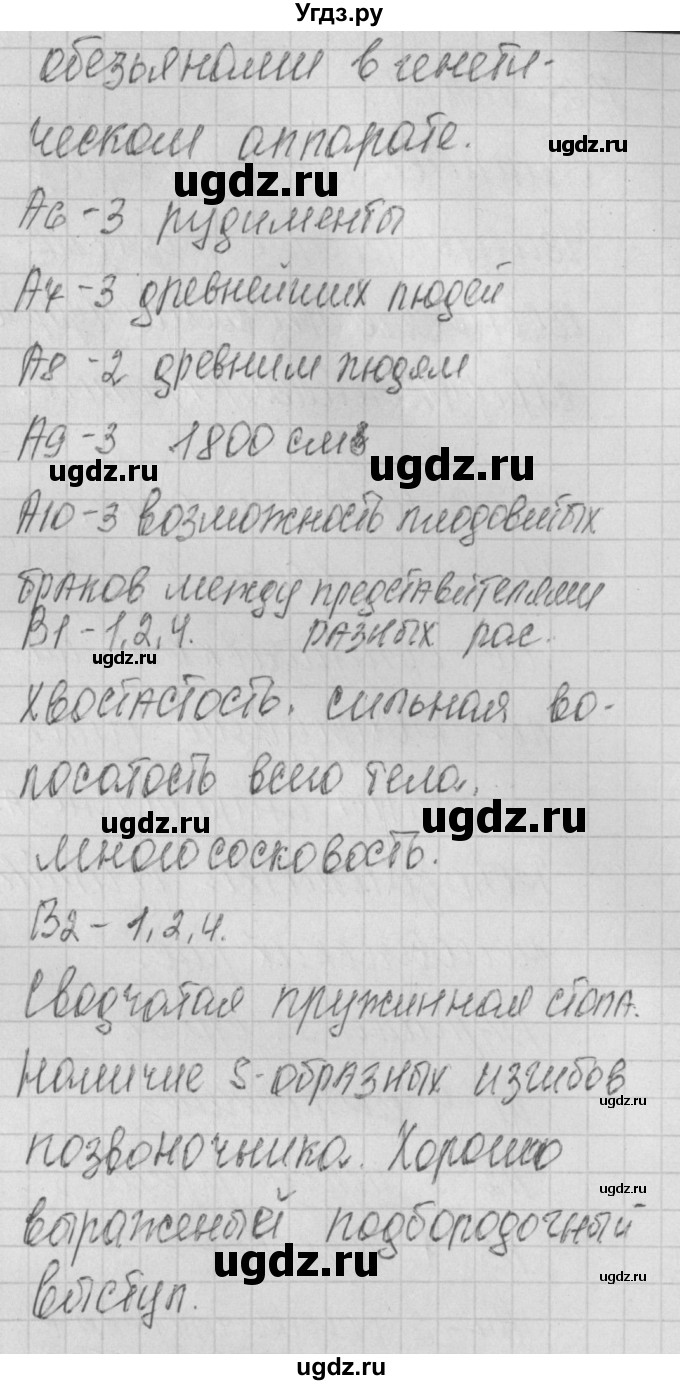 Угдз.ру
обезьянами в генети-
ческом аппарате.
ugdz.ru
ugdz.ru
А6 -3 рудименты
А7 -3 древнейших людей
А8 -2 древним людям
А9 -3 1800 см3
ugdz.ru
ugdz.ru
А10 -3 возможность плодовитых
браков между представителями
В1 -1,2,4. разных рас.
ugdz.ru
хвостастость. сильная во-
лосатость всего тела.
ugdz.ru
ugdz.ru
многососковость.
В2 - 1,2,4.
Сводчатая пружинная стопа.
Наличие S-образных изгибов
ugdz.ru
позвоночника. Хорошо
ugdz.ru
выраженый подбородочный
ugdz.ru
ugdz.ru
выступ.
ugdz.ru